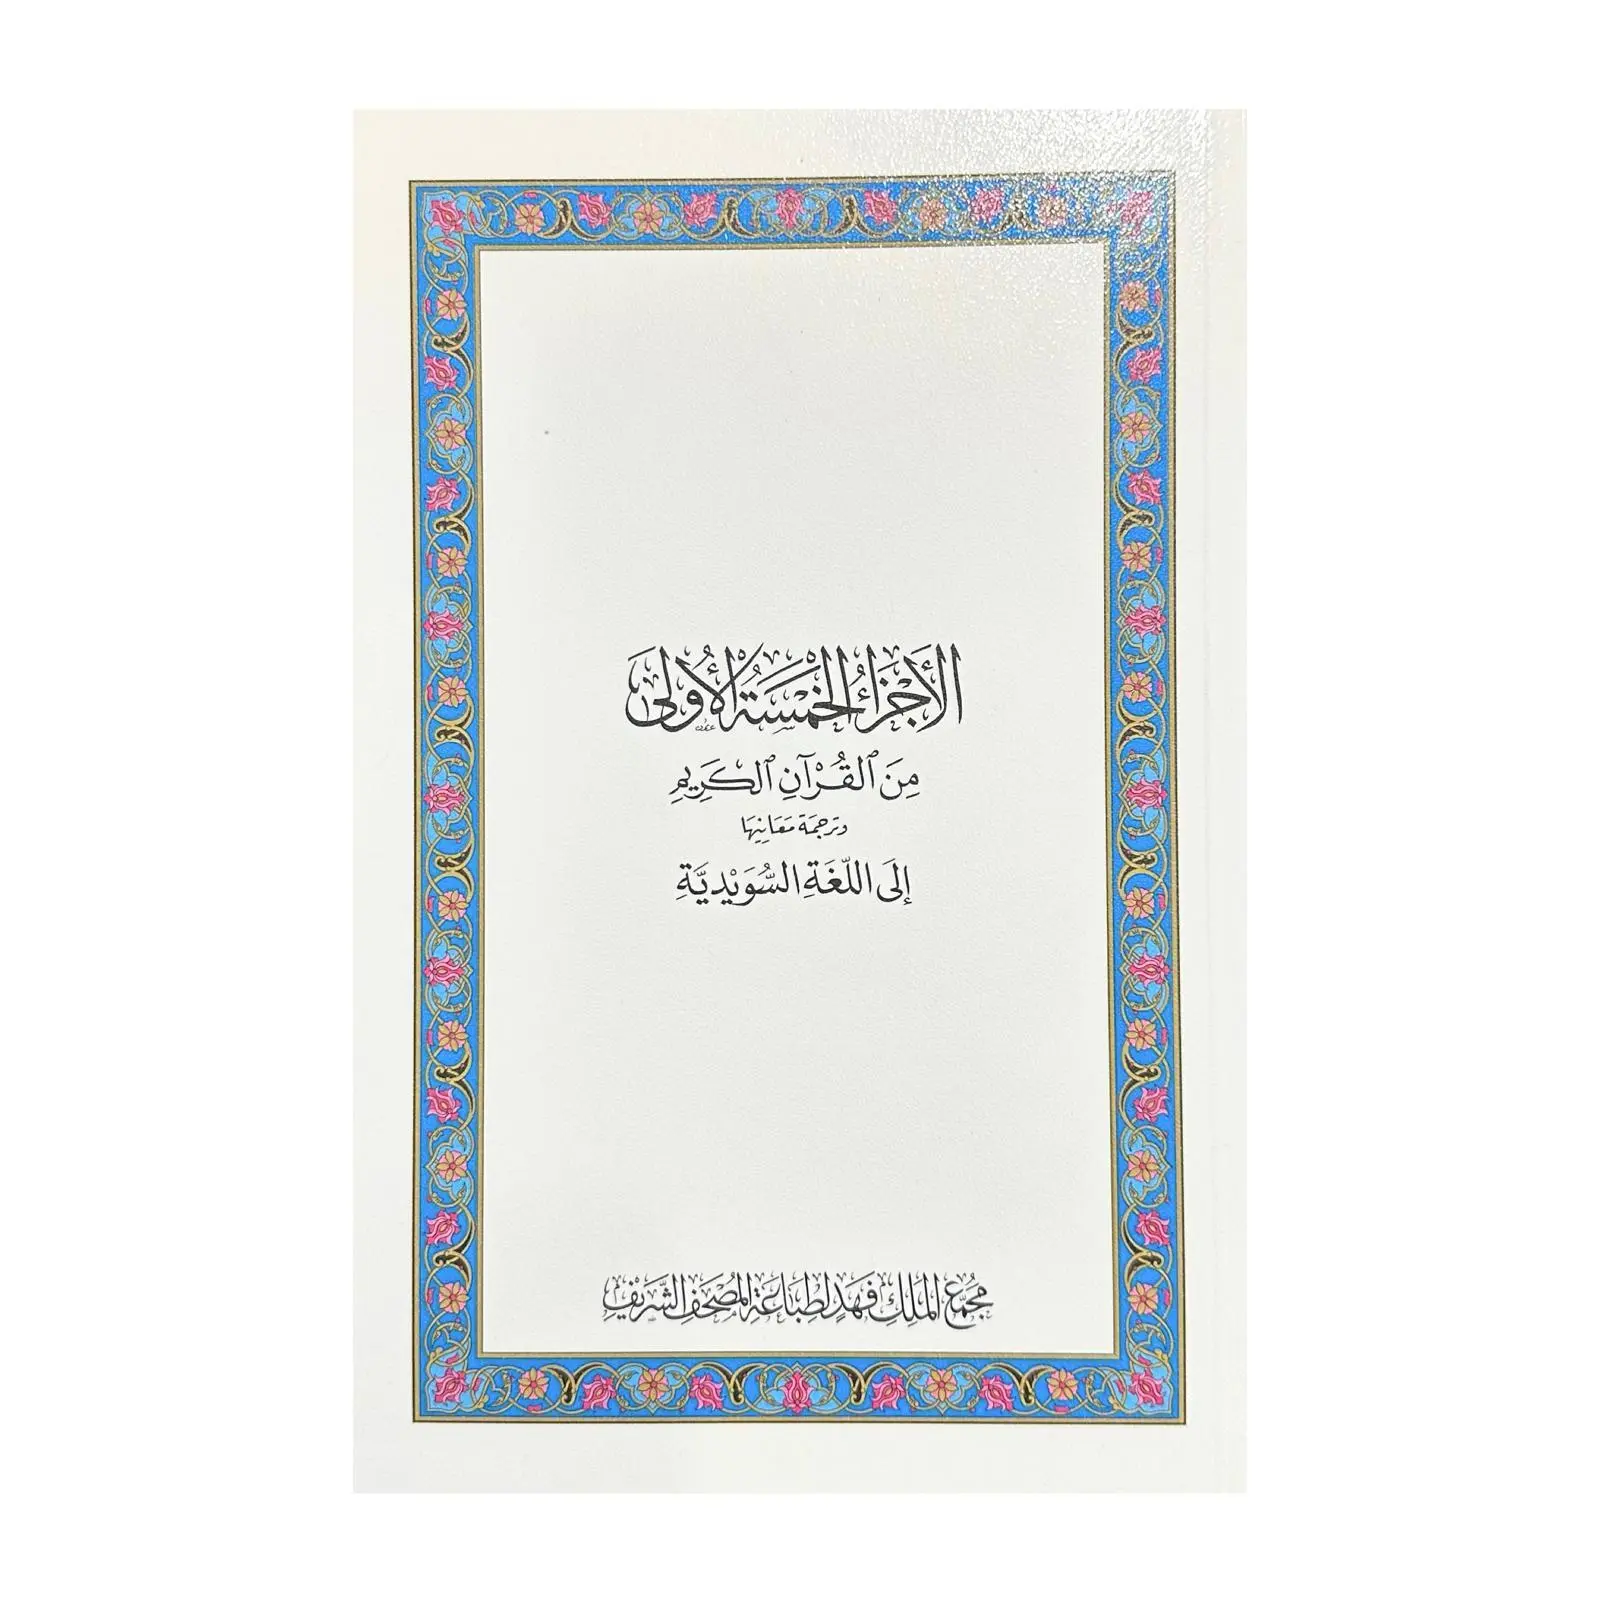 الأَجْزَاءُ الخَمْسَةُ الأُولَى
مِنَ ٱلْقُرْآنِ ٱلْكَرِيمِ
وترجمة مَعَانِيهَا
إِلَى اللُّغَةِ السُّوَيْدِيَّةِ
مُجَمَّعُ المَلِكِ فَهْدٍ لِطِبَاعَةِ المُصْحَفِ الشَّرِيفِ